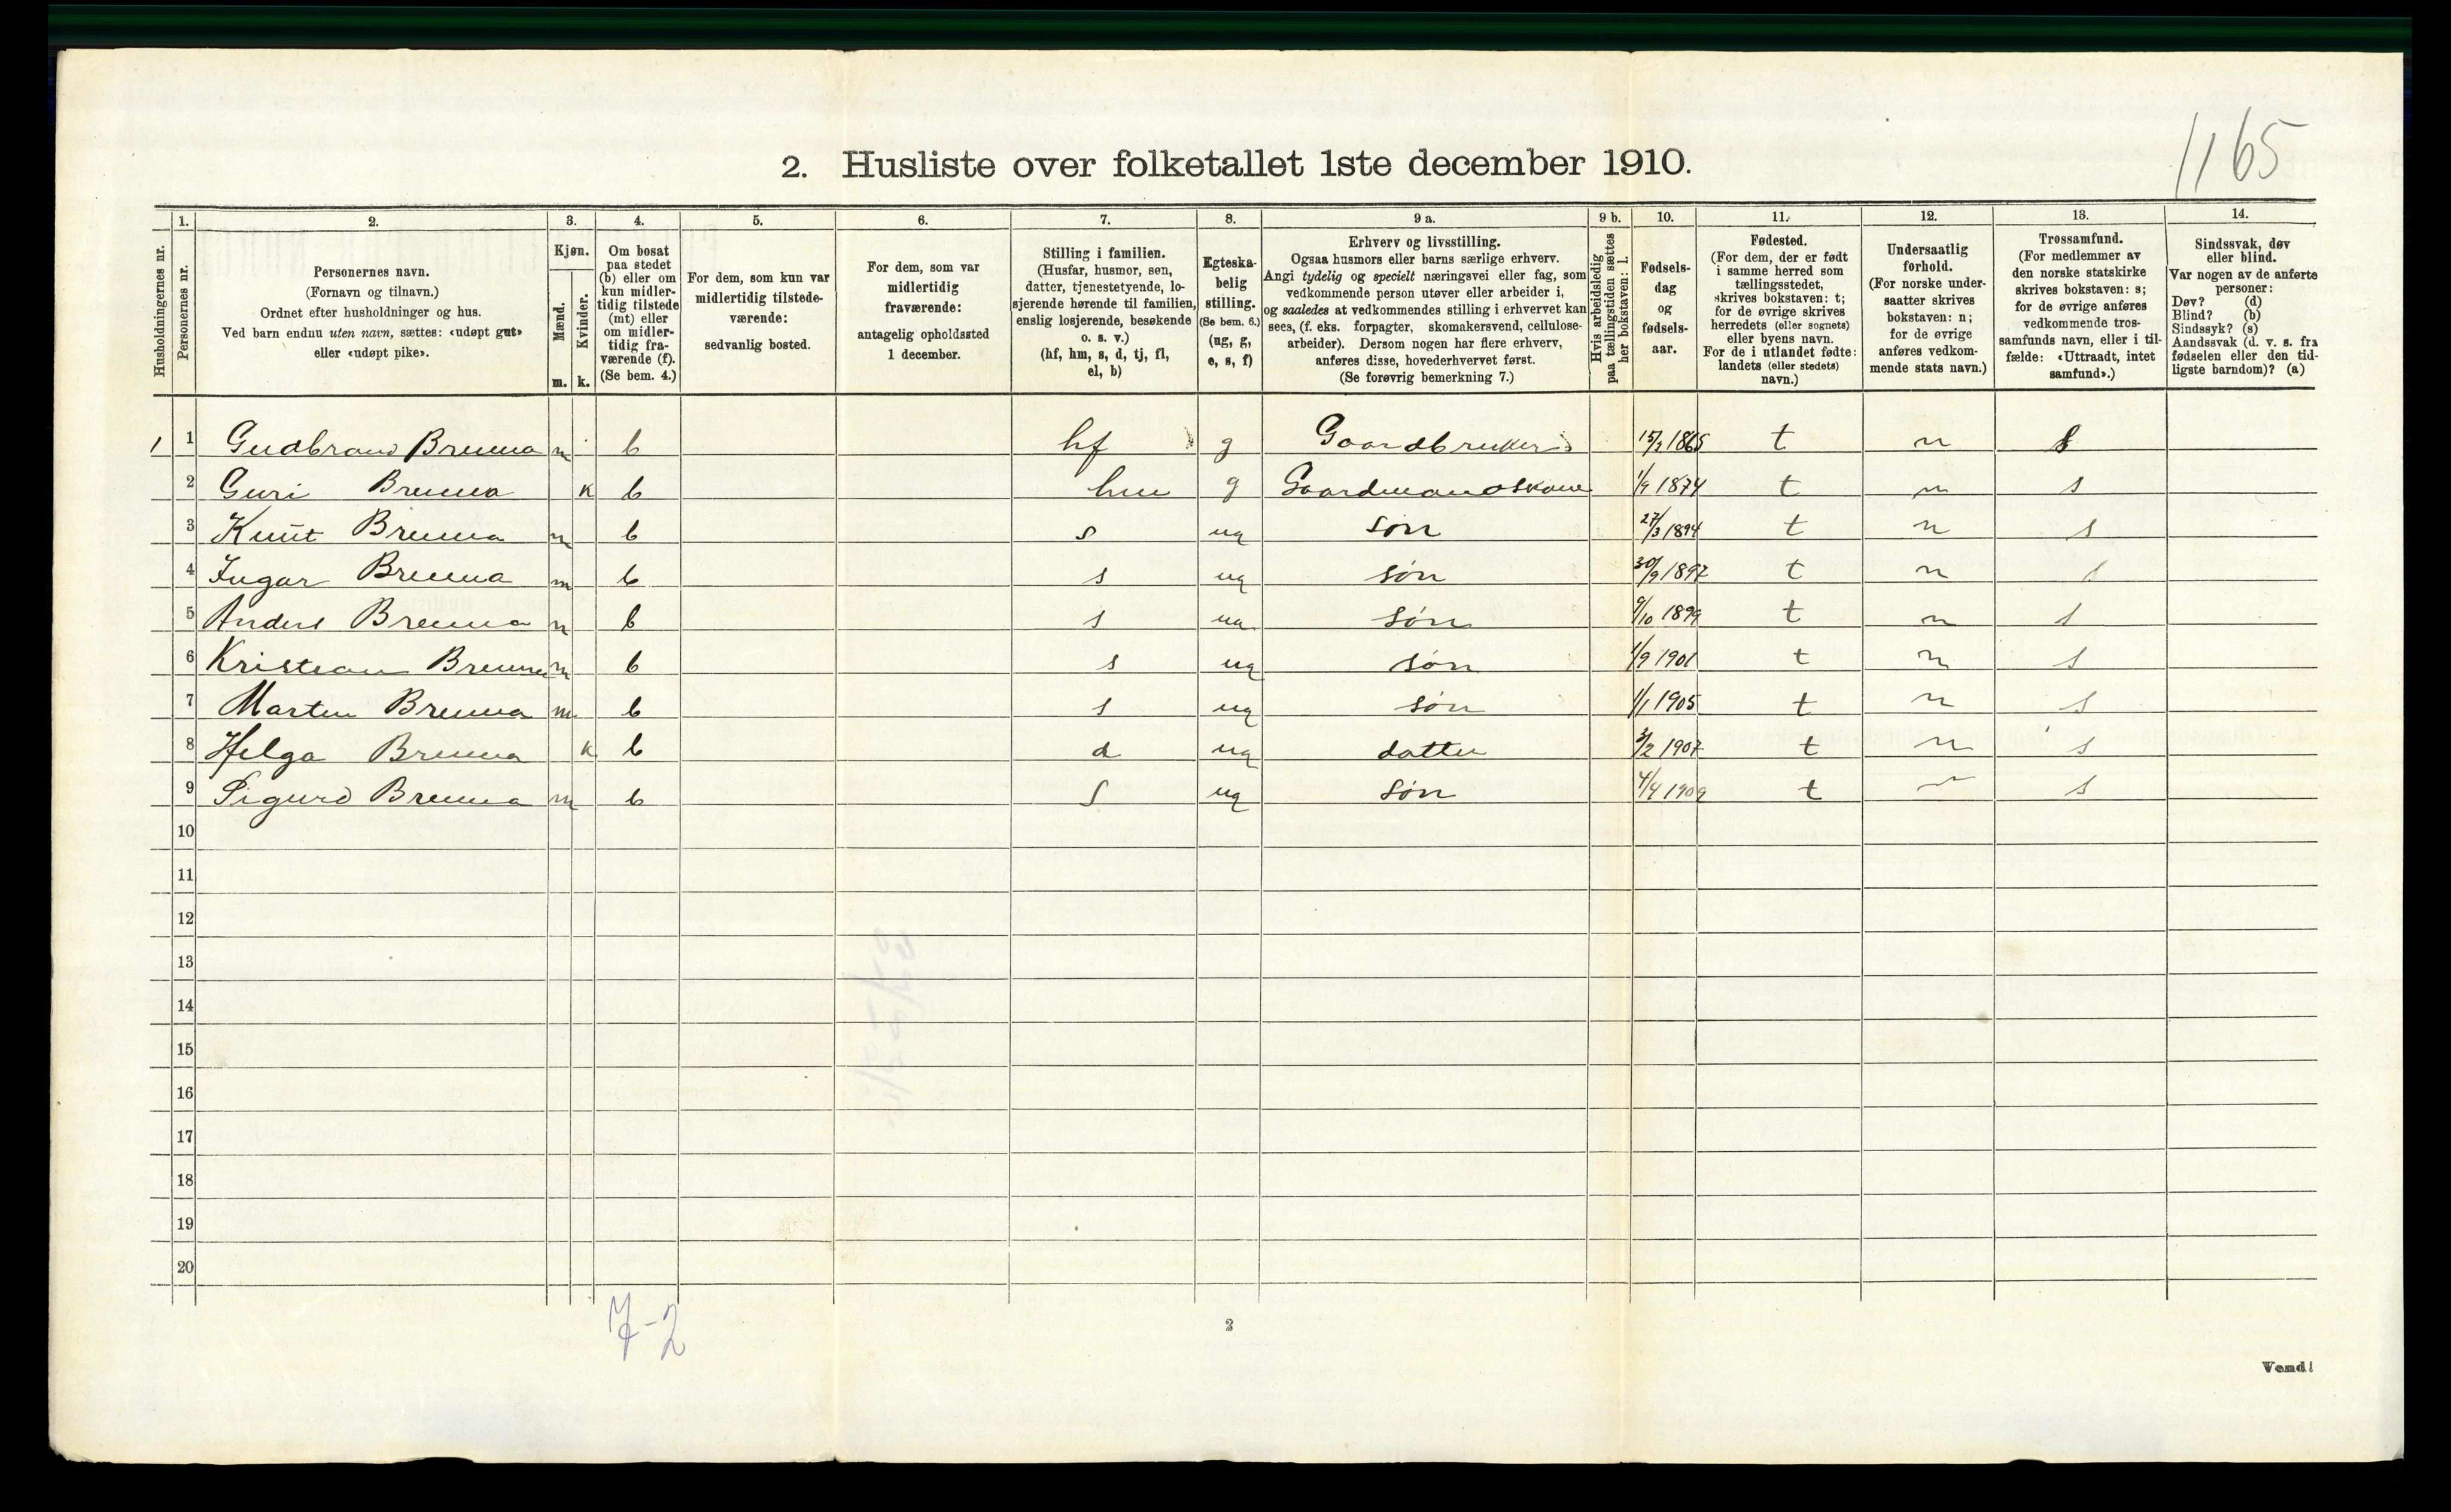 1165
2. Husliste over folketallet 1ste december 1910.
Husholdningernes nr.
1.
Personernes nr.
2.
Personernes navn.
(Fornavn og tilnavn.)
Ordnet efter husholdninger og hus.
Ved barn endnu uten navn, sættes: «udøpt gut»
eller «udøpt pike».
3.
Kjøn.
Mænd.
Kvinder.
m. k.
4.
Om bosat
paa stedet
(b) eller om
kun midler-
tidig tilstede
(mt) eller
om midler-
tidig fra-
værende (f).
(Se bem. 4.)
5.
For dem, som kun var
midlertidig tilstede-
værende:
sedvanlig bosted.
6.
For dem, som var
midlertidig
fraværende:
antagelig opholdssted
1 december.
7.
Stilling i familien.
(Husfar, husmor, søn,
datter, tjenestetyende, lo-
sjerende hørende til familien,
enslig losjerende, besøkende
o. s. v.)
(hf, hm, s, d, tj, fl,
el, b)
8.
Egteska-
belig
stilling.
(Se bem. 6.)
(ug, g,
e, s, f)
9 a.
Erhverv og livsstilling.
Ogsaa husmors eller barns særlige erhverv.
Angi tydelig og specielt næringsvei eller fag, som
vedkommende person utøver eller arbeider i,
og saaledes at vedkommendes stilling i erhvervet kan
sees, (f. eks. forpagter, skomakersvend, cellulose-
arbeider). Dersom nogen har flere erhverv,
anføres disse, hovederhvervet først.
(Se forøvrig bemerkning 7.)
9 b.
Hvis arbeidsledig
paa tællingstiden sættes
her bokstaven: l.
10.
Fødsels-
dag
og
fødsels-
aar.
11.
Fødested.
(For dem, der er født
i samme herred som
tællingsstedet,
skrives bokstaven: t;
for de øvrige skrives
herredets (eller sognets)
eller byens navn.
For de i utlandet fødte:
landets (eller stedets)
navn.)
12.
Undersaatlig
forhold.
(For norske under-
saatter skrives
bokstaven: n;
for de øvrige
anføres vedkom-
mende stats navn.)
13.
Trossamfund.
(For medlemmer av
den norske statskirke
skrives bokstaven: s;
for de øvrige anføres
vedkommende tros-
samfunds navn, eller i til-
fælde: «Uttraadt, intet
samfund».)
14.
Sindssvak, døv
eller blind.
Var nogen av de anførte
personer:
Døv? (d)
Blind? (b)
Sindssyk? (s)
Aandssvak (d. v. s. fra
fødselen eller den tid-
ligste barndom)? (a)
1 1 Gudbrand Brenna m b hf g Gaardbruker 15/2 1865 t n s
2 Guri Brenna k b hm g Gaardmandskone 1/9 1874 t n s
3 Knut Brenna m b s ug søn 27/3 1894 t n s
4 Ingar Brenna m b s ug søn 30/9 1897 t n s
5 Anders Brenna m b s ug søn 9/10 1899 t n s
6 Kristian Brenna m b s ug søn 1/9 1901 t n s
7 Martin Brenna m b s ug søn 1/1 1905 t n s
8 Helga Brenna k b d ug datter 2 1907 t n s
9 Sigurd Brenna m b s ug søn 4/4 1909 t n s
10
11
12
13
14
15
16
17
18
19
20
7-2
2
Vend!